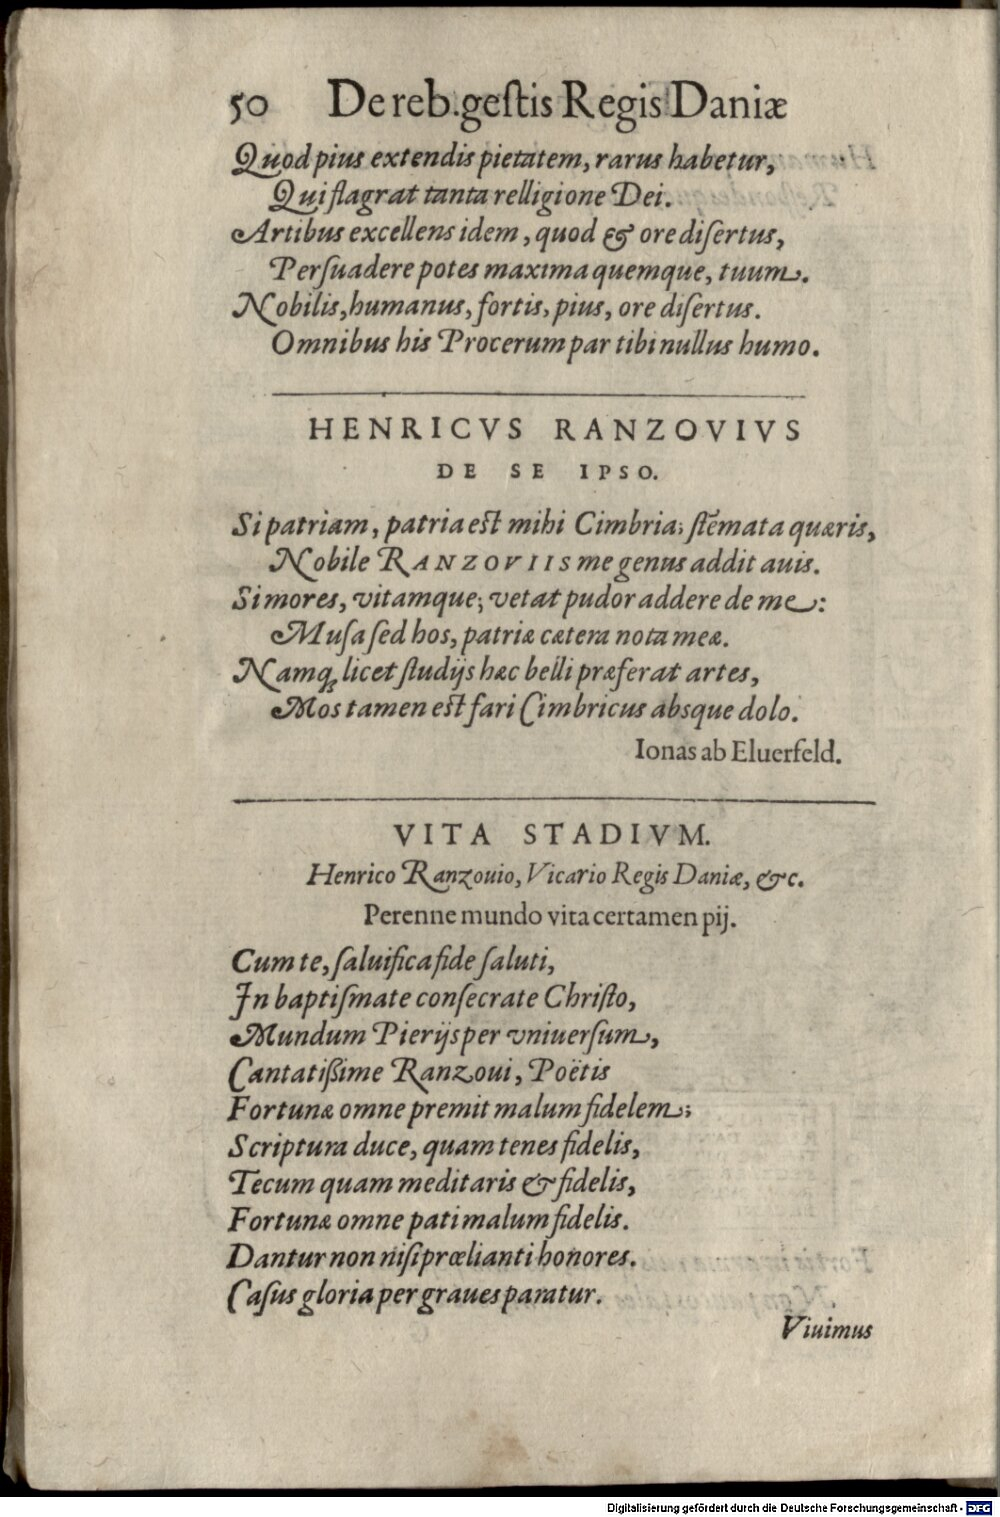 50 De reb. gestis Regis Daniæ
Quod pius extendis pietatem, rarus habetur,
Qui flagrat tanta relligione Dei.
Artibus excellens idem, quod & ore disertus,
Persuadere potes maxima quemque, tuum.
Nobilis, humanus, fortis, pius, ore disertus.
Omnibus his Procerum par tibi nullus humo.
HENRICVS RANZOVIVS
DE SE IPSO.
Si patriam, patria est mihi Cimbria; stẽmata quæris,
Nobile RANZOVIIS me genus addit auis.
Si mores, vitamque; vetat pudor addere de me:
Musa sed hos, patriæ cætera nota meæ.
Namq; licet studijs hæc belli præferat artes,
Mos tamen est fari Cimbricus absque dolo.
Ionas ab Eluerfeld.
VITA STADIVM.
Henrico Ranzouio, Vicario Regis Daniæ, &c.
Perenne mundo vita certamen pij.
Cum te, saluifica fide saluti,
In baptismate consecrate Christo,
Mundum Pierijs per vniuersum,
Cantatißime Ranzoui, Poëtis
Fortunæ omne premit malum fidelem;
Scriptura duce, quam tenes fidelis,
Tecum quam meditaris & fidelis,
Fortunæ omne pati malum fidelis.
Dantur non nisi prœlianti honores.
Casus gloria per graues paratur.
Viuimus
Digitalisierung gefördert durch die Deutsche Forschungsgemeinschaft - DFG